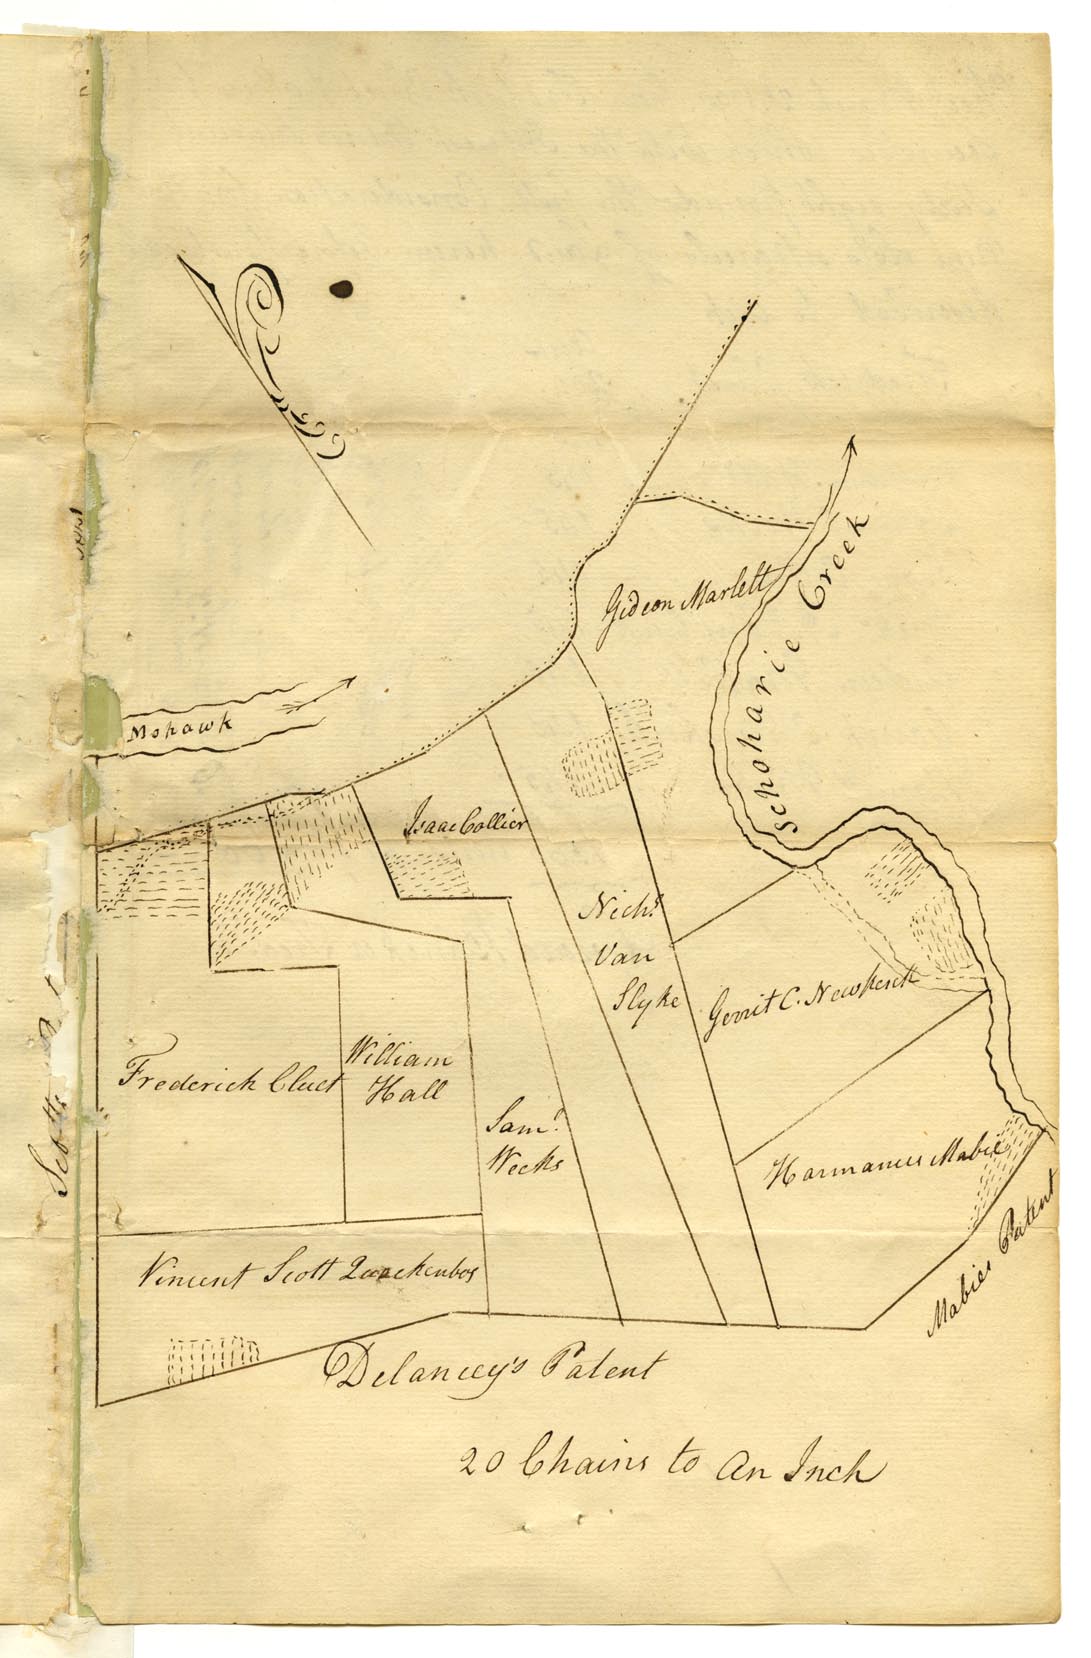 Mohawk
Schoharie Creek
Gideon Marlett
Isaac Collier
Nichs
Van
Slyke
Gerrit C. Newkerck
William
Hall
Frederick Cluet
Saml
Weeks
Harmanus Mabie
Mabies Patent
Vincent Scott Quackenbos
Delancey's Patent
20 Chains to An Inch